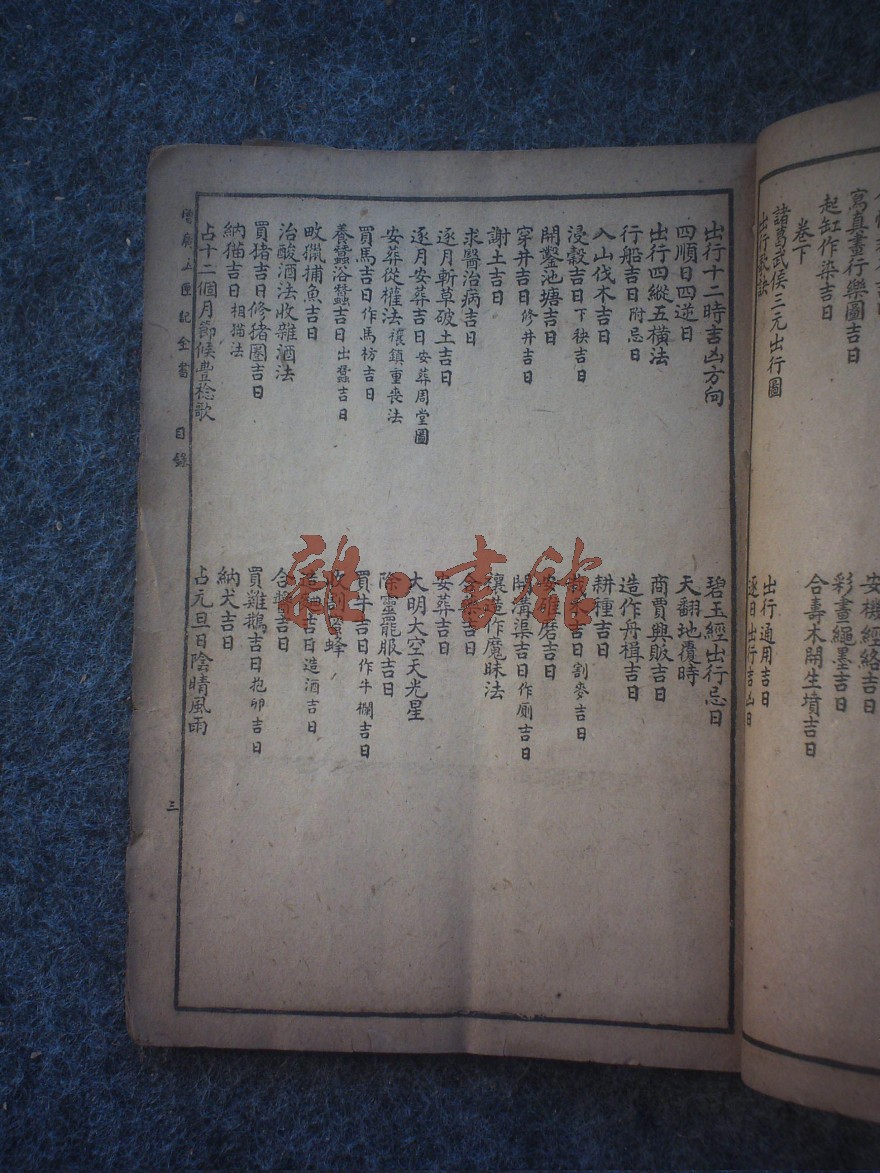 寫真畫行樂圖吉日
起缸作染吉日
卷下
諸葛武侯三元出行圖
出行歌訣
安機經絡吉日
彩畫繩墨吉日
合壽木開生墳吉日
出行通用吉日
逐日出行吉凶日
出行十二時吉凶方向
四順日四逆日
出行四縱五橫法
行船吉日附忌日
入山伐木吉日
浸穀吉日下秧吉日
開鑿池塘吉日
穿井吉日修井吉日
謝土吉日
求醫治病吉日
逐月斬草破土吉日
逐月安葬吉日安葬周堂圖
安葬從權法禳鎮重喪法
買馬吉日作馬枋吉日
養蠶浴蠶吉日出蠶吉日
畋獵捕魚吉日
治酸酒法收雜酒法
買猪吉日修猪圈吉日
納猫吉日相猫法
占十二個月節候豐稔歌
碧玉經出行忌日
天翻地覆時
商賈興販吉日
造作舟楫吉日
耕種吉日
栽木吉日割麥吉日
安碓磨吉日
開溝渠吉日作厠吉日
禳造作魘昧法
合藥吉日
安葬吉日
大明大空天光星
除靈罷服吉日
買牛吉日作牛欄吉日
收割蜜蜂
造麯吉日造酒吉日
合醬吉日
買雞鵝吉日抱卵吉日
納犬吉日
占元旦日陰晴風雨
增廣玉匣記全書
目錄
三
雜·書館